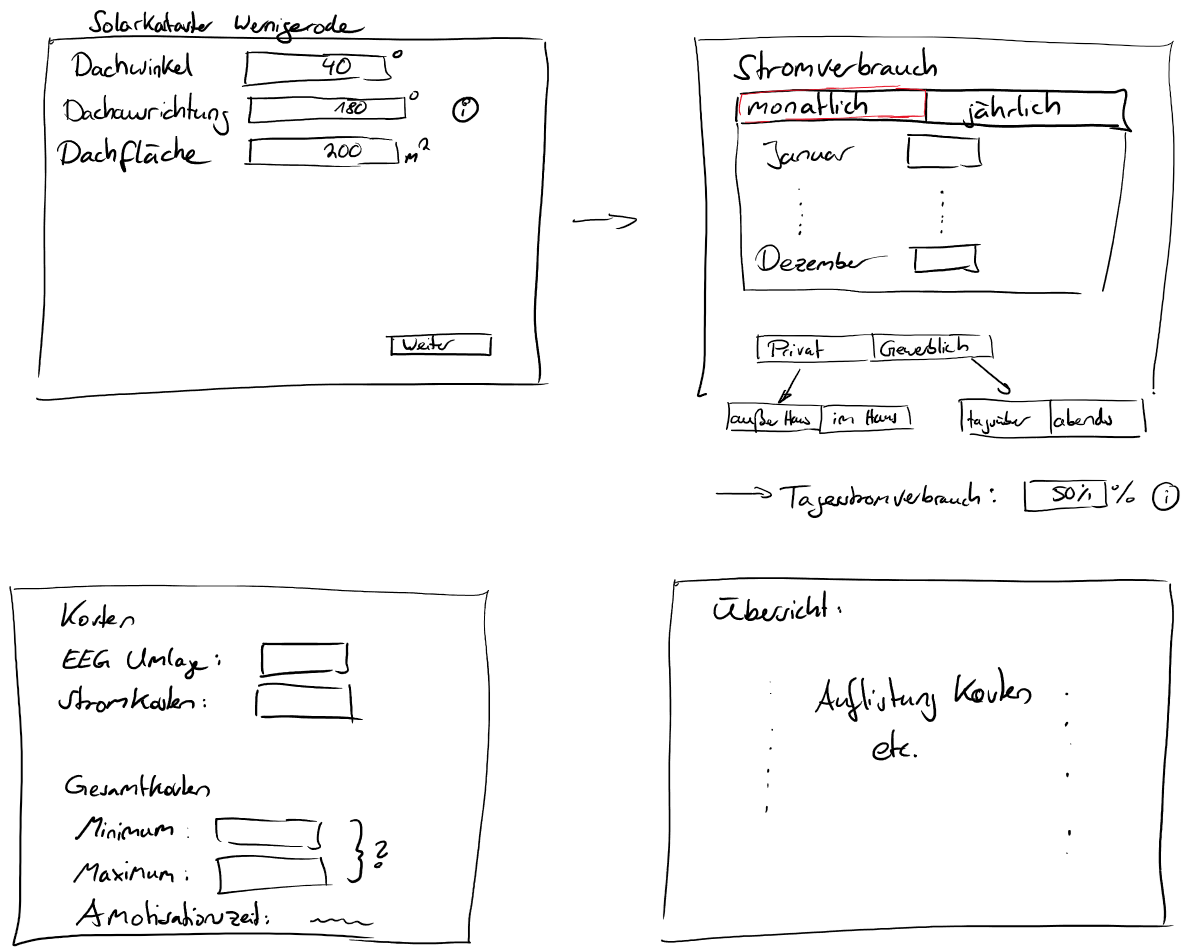 Solarkataster Wernigerode
Dachwinkel 40 °
Dachausrichtung 180 ° i
Dachfläche 200 m²
Weiter
Stromverbrauch
monatlich jährlich
Januar
Dezember
Privat Gewerblich
außer Haus im Haus tagsüber abends
Tagesstromverbrauch: 50% % i
Kosten
EEG Umlage:
Stromkosten:
Gesamtkosten
Minimum:
Maximum: ?
Amotisationszeit:
Übersicht:
Auflistung Kosten
etc.